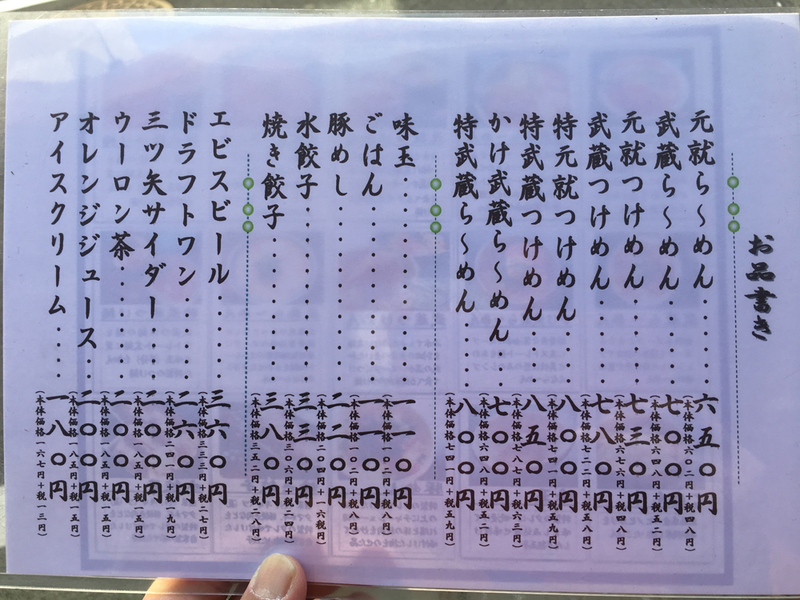 お品書き
元就ら〜めん……六五〇円
(本体価格六〇二円+税四八円)
武蔵ら〜めん……七〇〇円
(本体価格六四八円+税五二円)
元就つけめん……七三〇円
(本体価格六七六円+税
武蔵つけめん……七八〇円
(本体価格七二二円+税五八円)
特元就つけめん……八〇〇円
(本体価格七四一円+税五九円)
特武蔵つけめん……八五〇円
(本体価格七八七円+税六三円)
かけ武蔵ら〜めん……七〇〇円
(本体価格六四八円+税五二円)
特武蔵ら〜めん……八〇〇円
(本体価格七四一円+税五九円)
味玉……一一〇円
(本体価格一〇二円+税八円)
ごはん……一一〇円
(本体価格一〇二円+税八円)
豚めし……二二〇円
(本体価格二〇四円+一六税円)
水餃子……三三〇円
(本体価格三〇六円+税二四円)
焼き餃子……三八〇円
(本体価格三五二円+税二八円)
エビスビール……三六〇円
(本体価格三三三円+税二七円)
ドラフトワン……二六〇円
(本体価格二四一円+税一九円)
三ツ矢サイダー……二〇〇円
(本体価格一八五円+税一五円)
ウーロン茶……二〇〇円
(本体価格一八五円+税一五円)
オレンジジュース……二〇〇円
(本体価格一八五円+税一五円)
アイスクリーム……一八〇円
(本体価格一六七円+税一三円)